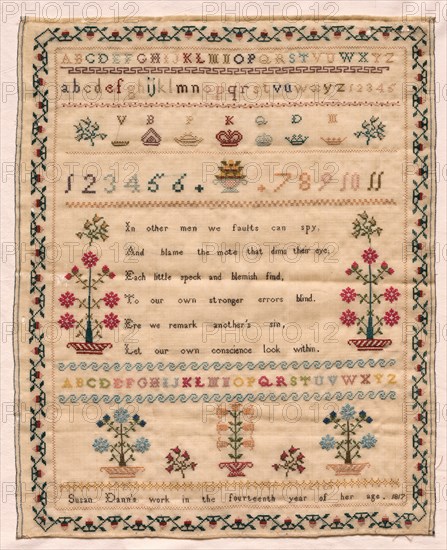 ABCDEFGHIJKLMNOPQRSTVUWXYZ
abcdefghijklmnopqrstvuwxyz12345
V B P K D
1234566 + + 7 8 9 10 11
In other men we faults can spy,
And blame the mote that dims their eye,
Each little speck and blemish find,
To our own stronger errors blind.
Ere we remark another's sin,
Let our own conscience look within.
ABCDEFGHIJKLMNOPQRSTUVWXYZ
Susan Dann's work in the fourteenth year of her age. 1817
PHOTO12